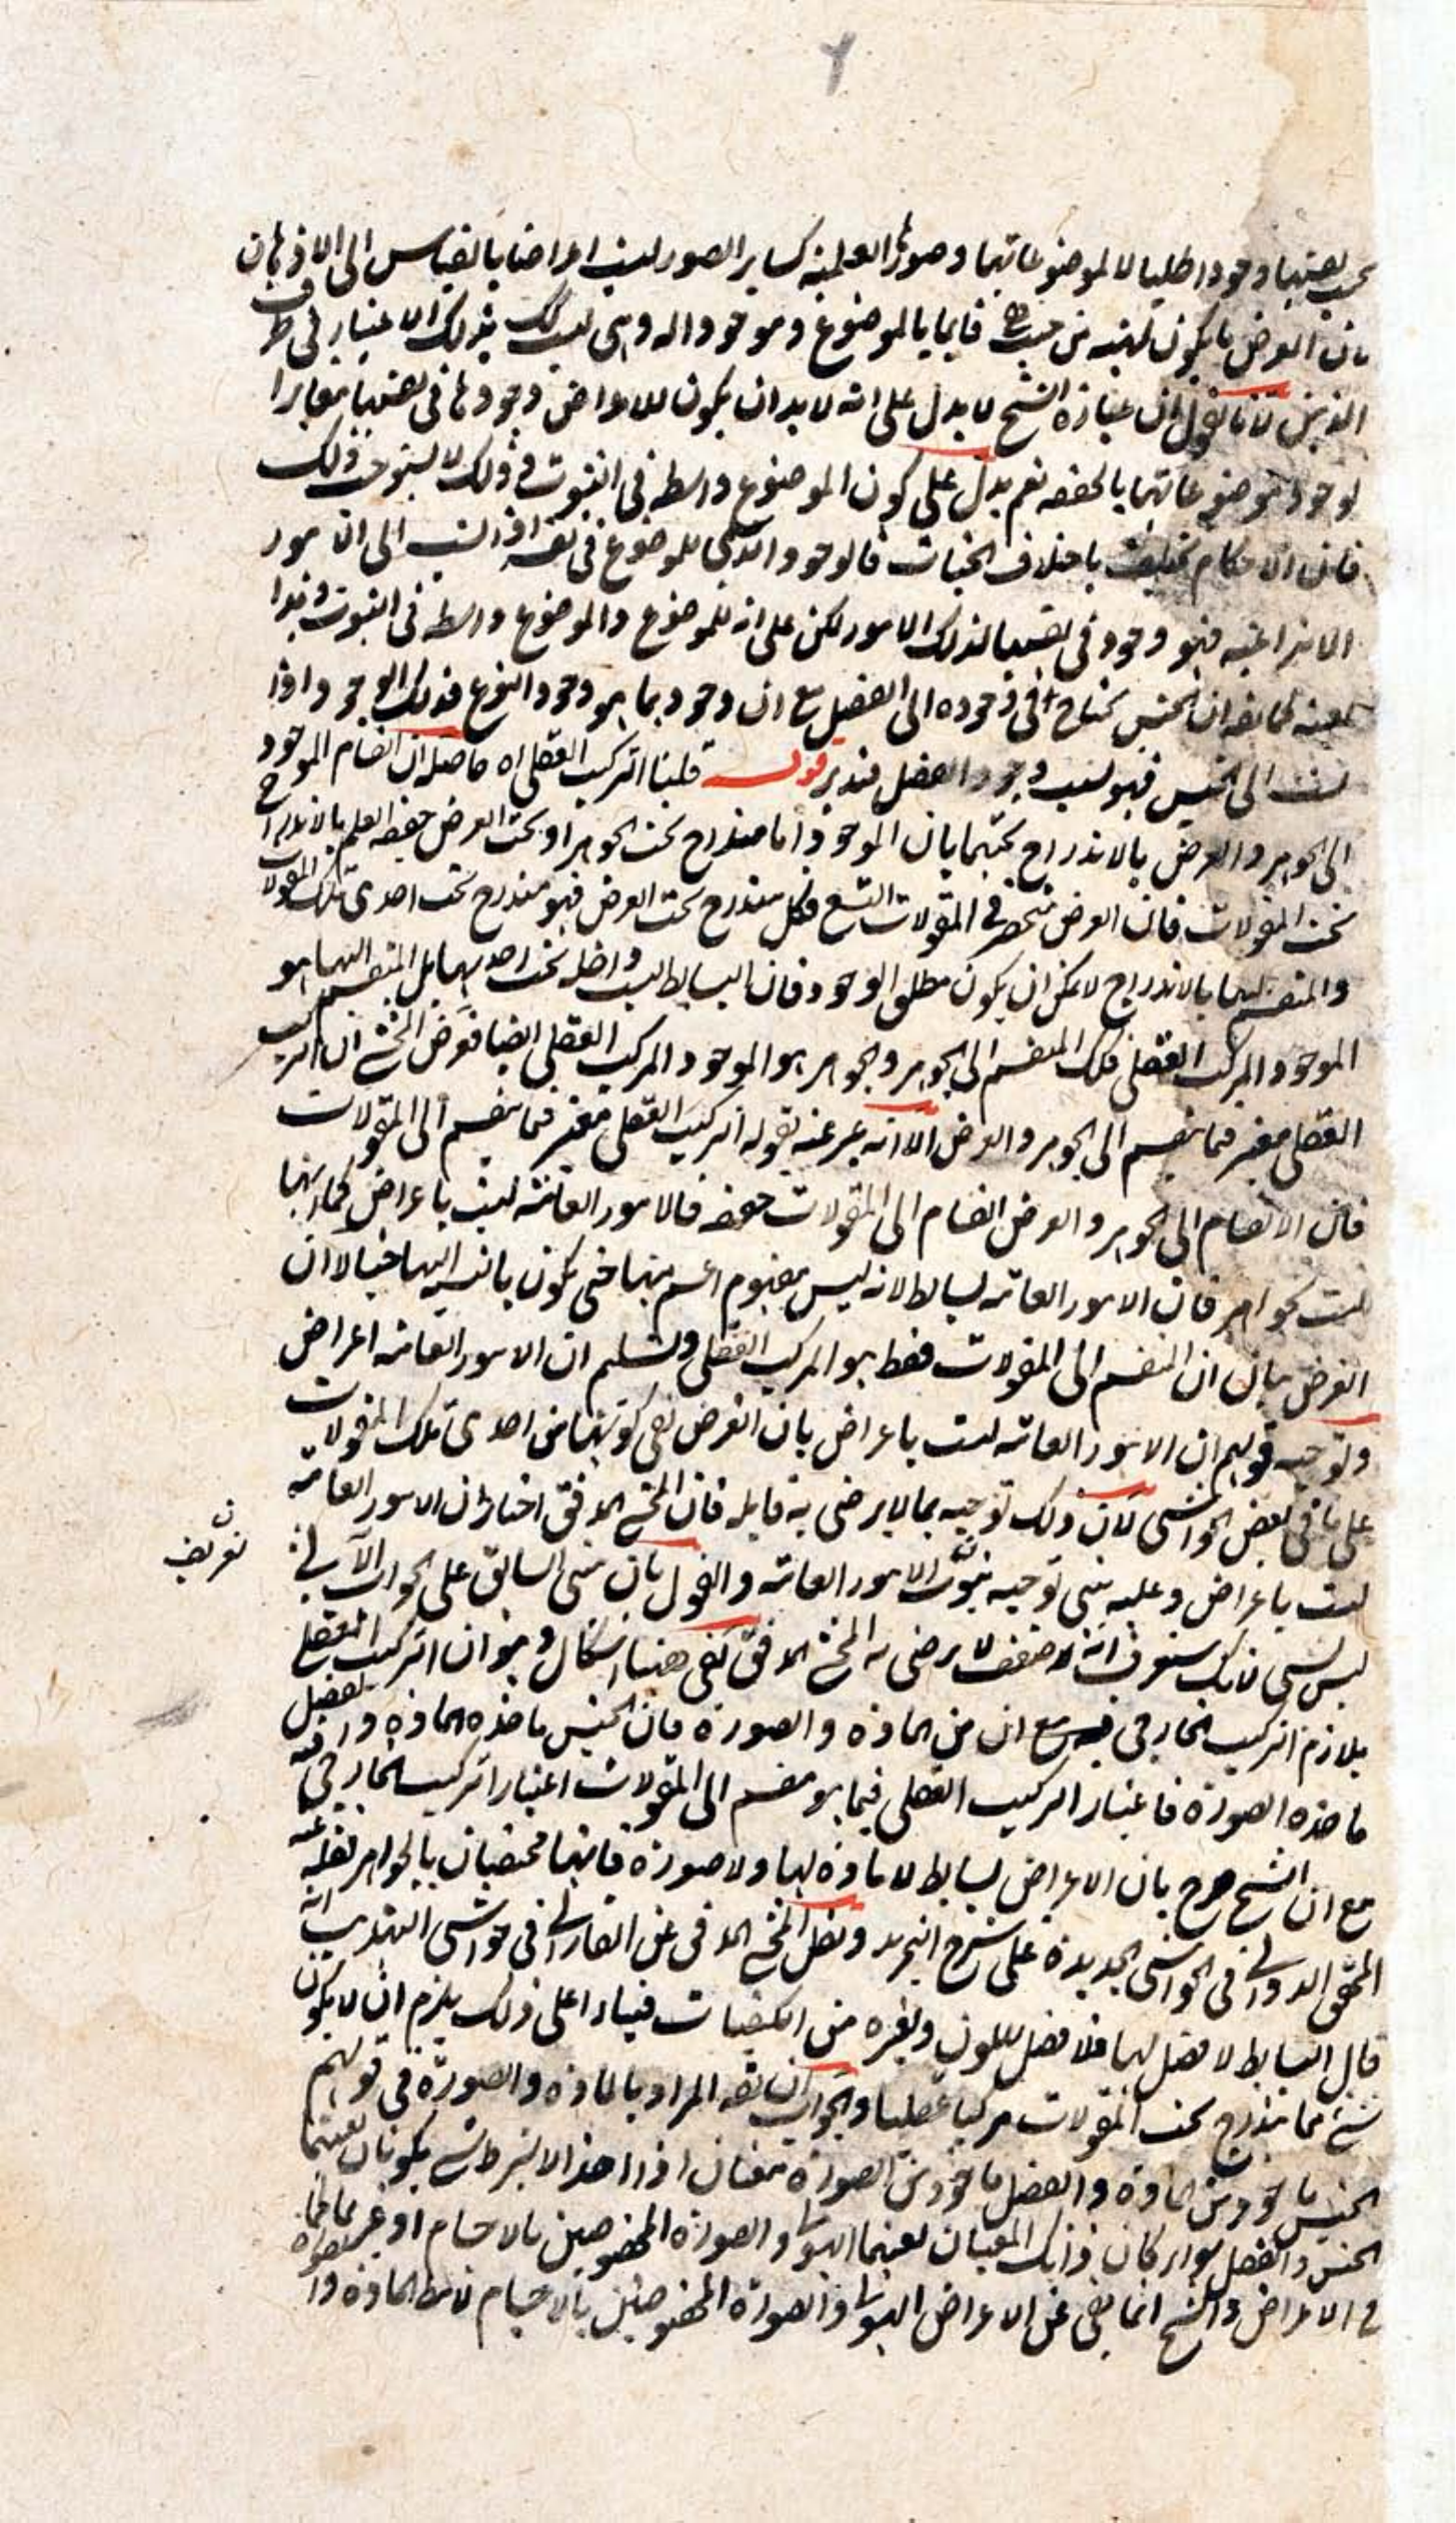 بحسب نفسها وجودا ظليا لا لموضوعاتهما وصورها العلمية كساير الصور ليست اعراضا بالقياس الى الاذهان
فان العرض ما يكون لهيته من حيث هي قايما بالموضوع وموجودا له وهي ليست كك بذلك الاعتبار في ظرف
الذهن لانا نقول ان عبارة الشيخ لا يدل على انه لا بد ان يكون للاعراض وجودها في نفسها مغايرا
لوجود موضوعاتهما بالحقيقة نعم يدل على كون الموضوع واسطة في الثبوت وذلك لا يستوجب ذلك
فان الاحكام تختلف باختلاف الحيثيات فالوجود الذي للموضوع في نفسه اذا نسب الى الامور
الانتزاعية فهو وجود في نفسها لتلك الامور لكن على انه للموضوع والموضوع واسطة في الثبوت وهذا
بعينه كما يقه ان الجنس يحتاج في وجوده الى الفصل مع ان وجودهما هو وجود النوع فذلك الوجود اذا
نسب الى الجنس فهو بسبب وجود الفصل فتدبر قوله قلنا التركيب العقلي اه حاصله ان انقسام الموجود
الى الجوهر والعرض بالاندراج تحتهما بان الموجود اما مندرج تحت الجوهر او تحت العرض حقيقة العلم بالاندراج
تحت المقولات فان العرض منحصر في المقولات التسع فكل مندرج تحت العرض فهو مندرج تحت احدى تلك المقولات
والمنقسم اليهما بالاندراج لا يمكن ان يكون مطلق الوجود فان البسايط ليست داخلة تحت احديهما بل المنقسم اليهما هو
الموجود المركب العقلي فكك المنقسم الى الجوهر والجوهر هو الموجود المركب العقلي ايضا فغرض المحشي ان التركيب
العقلي معتبر فيما ينقسم الى الجوهر والعرض الا انه عبر عنه بقوله التركيب العقلي معتبر فيما ينقسم الى المقولات
فان الانقسام الى الجوهر والعرض انقسام الى المقولات حقيقة فالامور العامة ليست باعراض كما انها
ليست بجواهر فان الامور العامة بسايط لانه ليس مفهوم اعم منها حتى يكون بالنسبة اليها جنسا لا ان
الغرض بيان ان المنقسم الى المقولات فقط هو المركب العقلي وتسليم ان الامور العامة اعراض
وتوجيه قولهم ان الامور العامة ليست باعراض بان الغرض نفي كونها من احدى تلك المقولات
على ما في بعض الحواشي لان ذلك توجيه بما لا يرضى به قايله فان المحشي المدقق اختار ان الامور العامة
ليست باعراض وعليه بنى توجيه ثبوت الامور العامة والقول بان بنى السابق على الجواب الآتي
ليس بشي لانك ستعرف انه لا ضعف لا يرضى به المحشي المدقق بقي ههنا اشكال وهو ان التركيب العقلي
تعريف
يلازم التركيب الخارجي فيه مع ان من المادة والصورة فان الجنس ماخذه المادة والفصل
ماخذه الصورة فاعتبار التركيب العقلي فيما هو منقسم الى المقولات اعتبار التركيب الخارجي فيه
مع ان الشيخ صرح بان الاعراض بسايط لا مادة لها ولا صورة فانهما مختصتان بالجواهر نقله عنه
المحقق الدواني في الحواشي الجديدة على شرح التجريد ونقل المحشي المدقق عن الفارابي في حواشي التهذيب انه
قال البسايط لا فصل لها فلا فصل للون وغيره من الكيفيات فبناءا على ذلك يلزم ان لا يكون
شيء مما يندرج تحت المقولات مركبا عقليا والجواب ان يقه المراد بالمادة والصورة في قولهم
الجنس ماخوذ من المادة والفصل ماخوذ من الصورة معنيان اذا اخذا لا بشرط شي يكونان بعينهما
الجنس والفصل سواء كان ذانك المعنيان بعينهما الهيولى والصورة المخصوصين بالاجسام او غيرهما كما
في الاعراض والشيخ انما نفى عن الاعراض الهيولى والصورة المخصوصين بالاجسام لا مط المادة والصورة